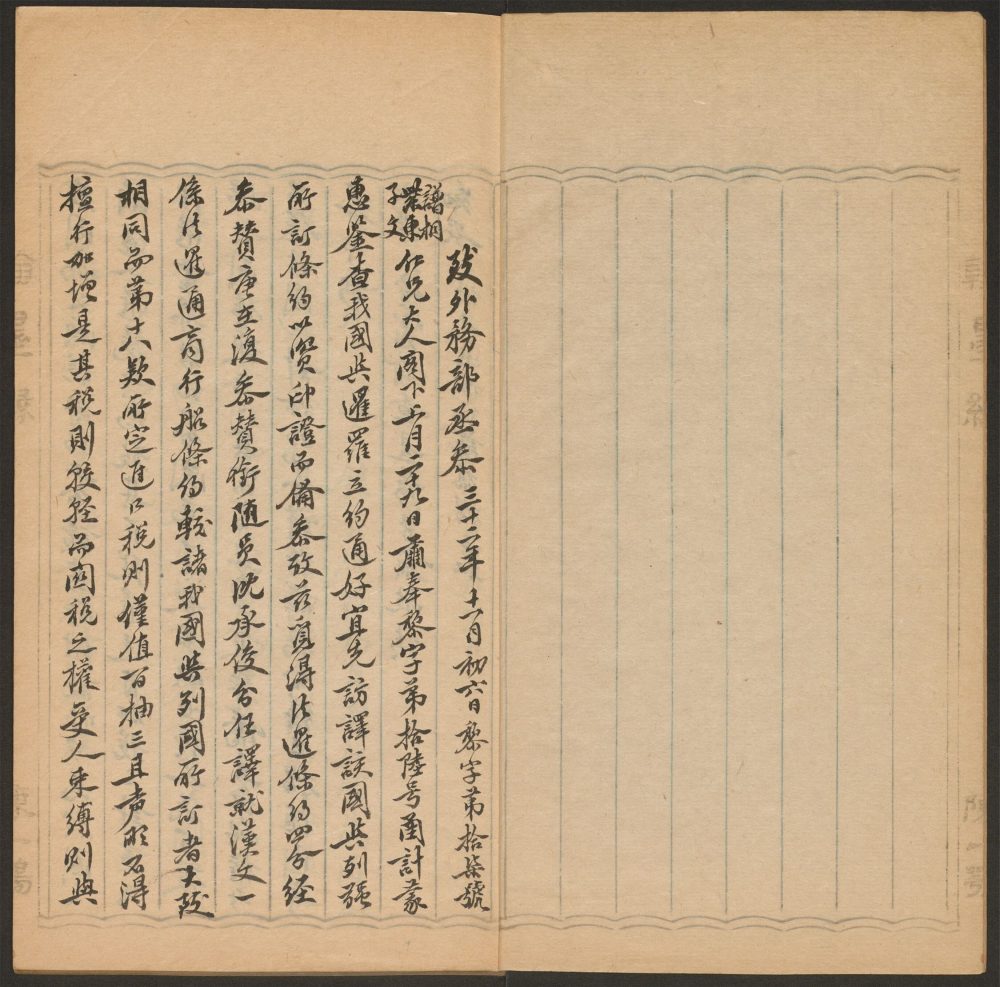 致外務部丞參 三十二年十一月初六日黎字第拾柒號
譜桐
農東
子文
仁兄大人閣下上月二十九日肅奉黎字第拾陸号函計蒙
惠鑒查我國與暹羅立約通好宜先訪譯該國與列強
所訂條約以資印證而備參攷茲覓得法暹條約四分經
參贊唐在復參贊銜隨員沈承俊分任譯就漢文一
係法暹通商行船條約較諸我國與列國所訂者大致
相同而第十八款所定進口稅則僅值百抽三且声明不得
擅行加增是其稅則較輕而國稅之權受人束縛則與